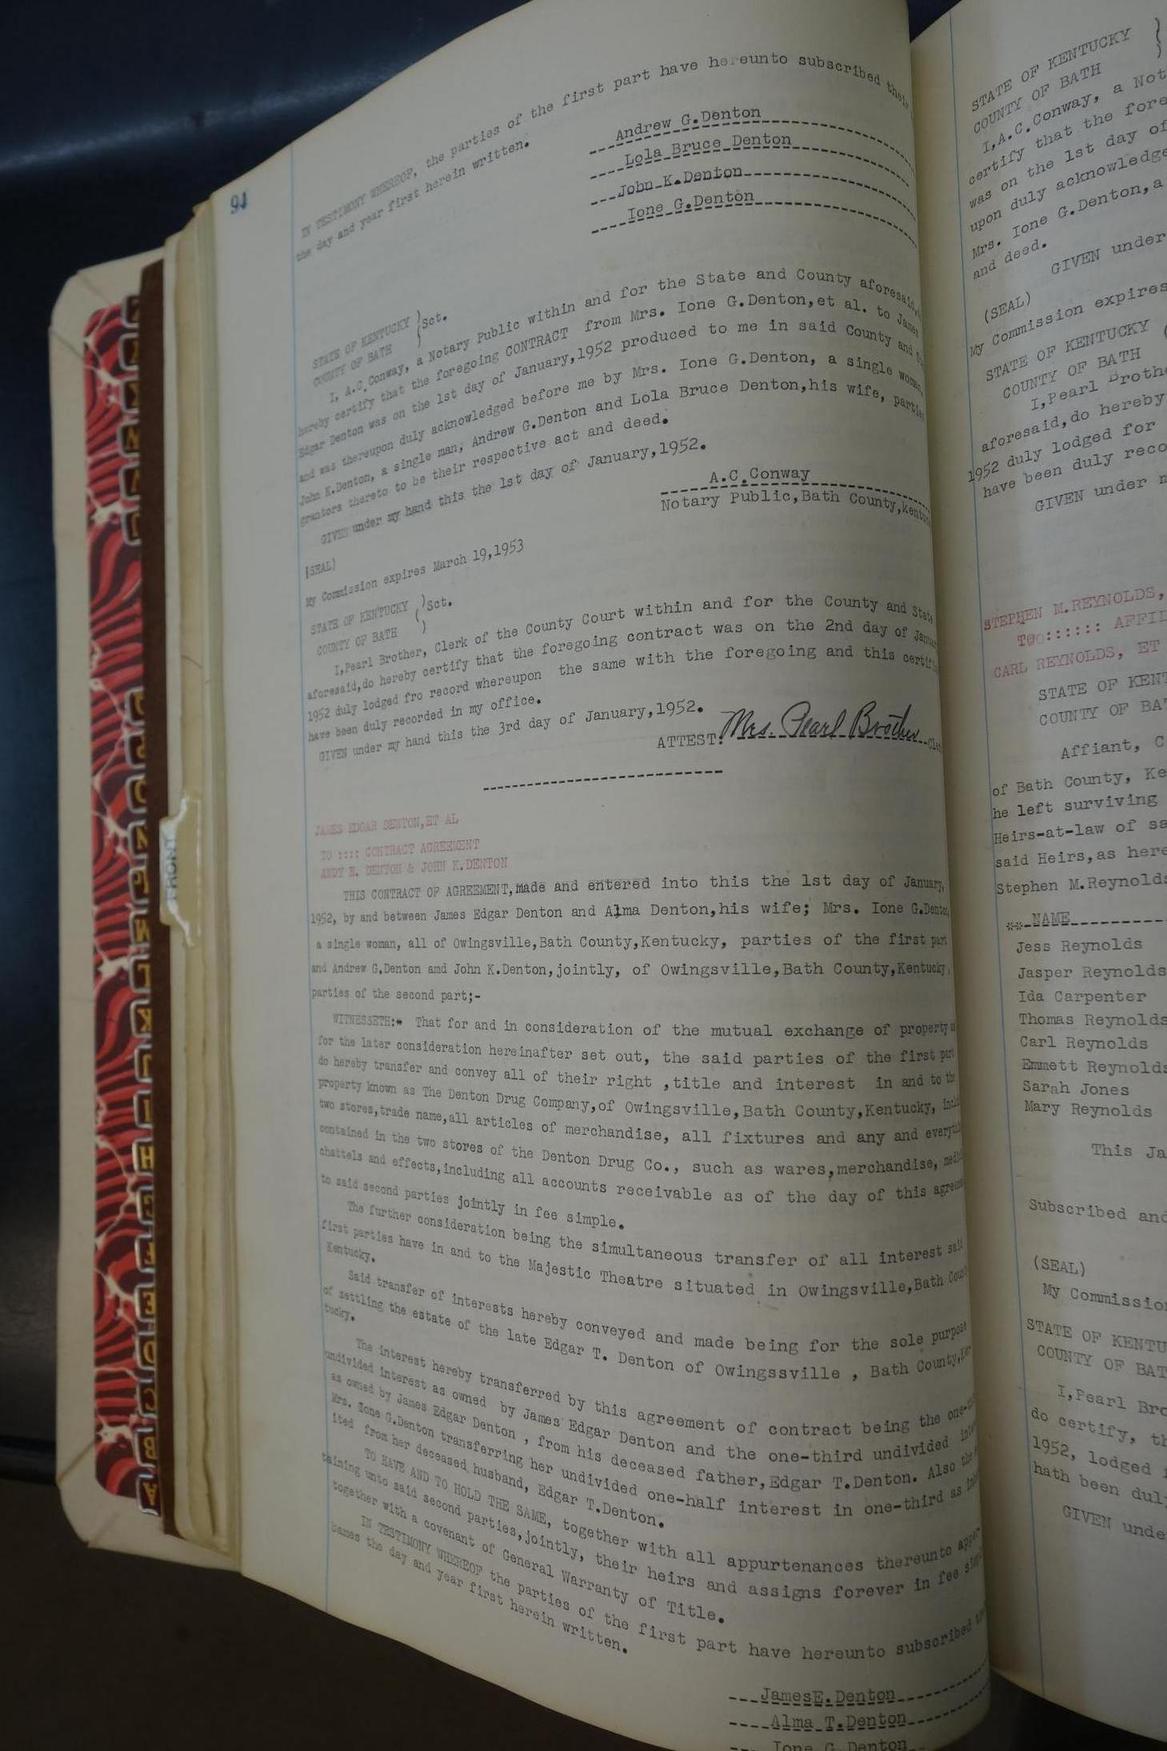 94
IN TESTIMONY WHEREOF, the parties of the first part have hereunto subscribed their
the day and year first herein written.
Andrew G.Denton
Lola Bruce Denton
John K.Denton
Ione G.Denton
STATE OF KENTUCKY )
COUNTY OF BATH ( Sct.
I, A.C.Conway, a Notary Public within and for the State and County aforesaid,
hereby certify that the foregoing CONTRACT from Mrs. Ione G.Denton,et al. to James
Edgar Denton was on the 1st day of January,1952 produced to me in said County and
and was thereupon duly acknowledged before me by Mrs. Ione G.Denton, a single woman,
John K.Denton, a single man; Andrew G.Denton and Lola Bruce Denton,his wife, parties
grantors thereto to be their respective act and deed.
GIVEN under my hand this the 1st day of January,1952.
A.C.Conway
Notary Public,Bath County,Kentucky
(SEAL)
My Commission expires March 19,1953
STATE OF KENTUCKY )Sct.
COUNTY OF BATH ( )
I,Pearl Brother, Clerk of the County Court within and for the County and State
aforesaid,do hereby certify that the foregoing contract was on the 2nd day of January
1952 duly lodged fro record whereupon the same with the foregoing and this certifi
have been duly recorded in my office.
GIVEN under my hand this the 3rd day of January,1952.
ATTEST: Mrs. Pearl Brother Cle
JAMES EDGAR DENTON,ET AL
TO :::: CONTRACT AGREEMENT
ANDY E. DENTON & JOHN K.DENTON
THIS CONTRACT OF AGREEMENT,made and entered into this the 1st day of January,
1952, by and between James Edgar Denton and Alma Denton,his wife; Mrs. Ione G.Denton,
a single woman, all of Owingsville,Bath County,Kentucky, parties of the first part
and Andrew G.Denton amd John K.Denton,jointly, of Owingsville,Bath County,Kentucky,
parties of the second part;-
WITNESSETH:* That for and in consideration of the mutual exchange of property
for the later consideration hereinafter set out, the said parties of the first part
do hereby transfer and convey all of their right ,title and interest in and to the
property known as The Denton Drug Company,of Owingsville,Bath County,Kentucky, incl
two stores,trade name,all articles of merchandise, all fixtures and any and everyth
contained in the two stores of the Denton Drug Co., such as wares,merchandise, medi
chattels and effects,including all accounts receivable as of the day of this agreem
to said second parties jointly in fee simple.
The further consideration being the simultaneous transfer of all interest said
first parties have in and to the Majestic Theatre situated in Owingsville,Bath Coun
Kentucky.
Said transfer of interests hereby conveyed and made being for the sole purpose
of settling the estate of the late Edgar T. Denton of Owingssville , Bath County,Ken
tucky.
The interest hereby transferred by this agreement of contract being the one-
undivided interest as owned by James Edgar Denton and the one-third undivided inte
as owned by James Edgar Denton , from his deceased father,Edgar T.Denton. Also the
Mrs. Ione G.Denton transferring her undivided one-half interest in one-third as
ited from her deceased husband, Edgar T.Denton.
TO HAVE AND TO HOLD THE SAME, together with all appurtenances thereunto apper
taining unto said second parties,jointly, their heirs and assigns forever in fee simpl
together with a covenant of General Warranty of Title.
IN TESTIMONY WHEREOF the parties of the first part have hereunto subscribed
names the day and year first herein written.
JamesE.Denton
Alma T.Denton
Ione G.Denton
STATE OF KENTUCKY
COUNTY OF BATH
I,A.C.Conway, a Not
certify that the fore
was on the 1st day of
upon duly acknowledge
Mrs. Ione G.Denton,a
and deed.
GIVEN under
(SEAL)
My Commission expires
STATE OF KENTUCKY (
COUNTY OF BATH
I,Pearl Brothe
aforesaid,do hereby
1952 duly lodged for
have been duly reco
GIVEN under m
STEPHEN M.REYNOLDS,
TO:::::: AFFID
CARL REYNOLDS, ET
STATE OF KENT
COUNTY OF BA
Affiant, C
of Bath County, Ke
he left surviving
Heirs-at-law of sa
said Heirs,as here
Stephen M.Reynolds
NAME
Jess Reynolds
Jasper Reynolds
Ida Carpenter
Thomas Reynolds
Carl Reynolds
Emmett Reynolds
Sarah Jones
Mary Reynolds
This Ja
Subscribed and
(SEAL)
My Commissio
STATE OF KENTU
COUNTY OF BAT
I,Pearl Bro
do certify, th
1952, lodged
hath been dul
GIVEN unde
FRONT
A
B
C
D
E
F